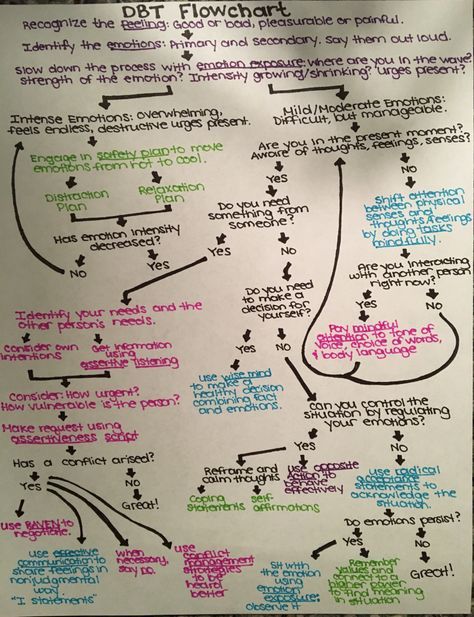 DBT Flowchart
Recognize the feeling: Good or bad, pleasurable or painful.
Identify the emotions: Primary and secondary. Say them out loud.
Slow down the process with emotion exposure: where are you in the wave?
strength of the emotion? Intensity growing/shrinking? Urges present?
Intense Emotions: overwhelming,
feels endless, destructive urges present.
Engage in safety plan to move
emotions from hot to cool.
Distraction
Plan
Relaxation
Plan
Has emotion intensity
decreased?
NO
Yes
Mild/Moderate Emotions:
Difficult, but manageable.
Are you in the present moment?
Aware of thoughts, feelings, senses?
Yes
NO
Do you need
something from
someone?
Yes
NO
Shift attention
between physical
senses and
thoughts & feelings
by doing tasks
mindfully.
Are you interacting
with another person
right now?
Yes
NO
Pay mindful
attention to tone of
voice, choice of words,
& body language
Identify your needs and the
other person's needs.
Consider own
intentions
Get information
using
assertive listening
Consider: How urgent?
How vulnerable is the person?
Make request using
assertiveness script
Has a conflict arised?
Yes
NO
Great!
use RAVEN to
negotiate.
use effective
communication to
share feelings in
nonjudgmental
way.
"I statements"
when
necessary,
say no.
use
conflict
management
strategies
to be
heard
better
Do you need
to make a
decision for
yourself?
Yes
NO
use wise mind
to make a
healthy decision
combining fact
and emotions.
Can you control the
situation by regulating
your emotions?
Yes
NO
Reframe and
calm thoughts
use opposite
action to
behave
effectively
Coping
statements
self-
affirmations
use radical
acceptance
statements to
acknowledge the
situation.
Do emotions persist?
Yes
NO
Sit with
the emotion
using
emotion
exposure:
observe it
Remember
values and
connect to a
higher power
to find meaning
in situation
Great!